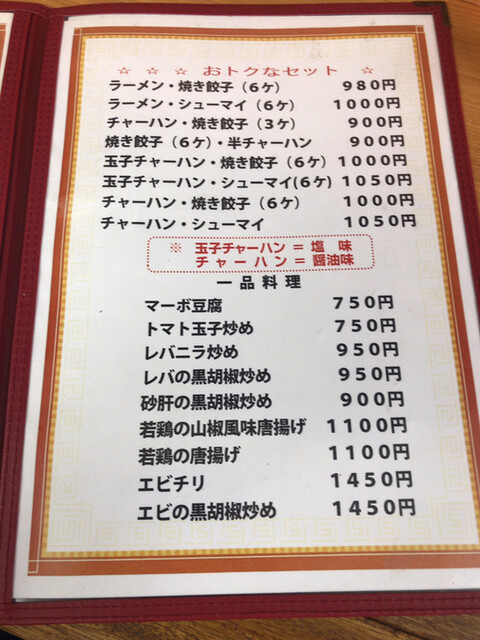 ☆ ☆ ☆ おトクなセット ☆
ラーメン・焼き餃子（６ケ） ９８０円
ラーメン・シューマイ（６ケ） １０００円
チャーハン・焼き餃子（３ケ） ９００円
焼き餃子（６ケ）・半チャーハン ９００円
玉子チャーハン・焼き餃子（６ケ） １０００円
玉子チャーハン・シューマイ(６ケ) １０５０円
チャーハン・焼き餃子（６ケ） １０００円
チャーハン・シューマイ １０５０円
※ 玉子チャーハン＝塩 味
チャーハン＝醤油味
一品料理
マーボ豆腐 ７５０円
トマト玉子炒め ７５０円
レバニラ炒め ９５０円
レバの黒胡椒炒め ９５０円
砂肝の黒胡椒炒め ９００円
若鶏の山椒風味唐揚げ １１００円
若鶏の唐揚げ １１００円
エビチリ １４５０円
エビの黒胡椒炒め １４５０円